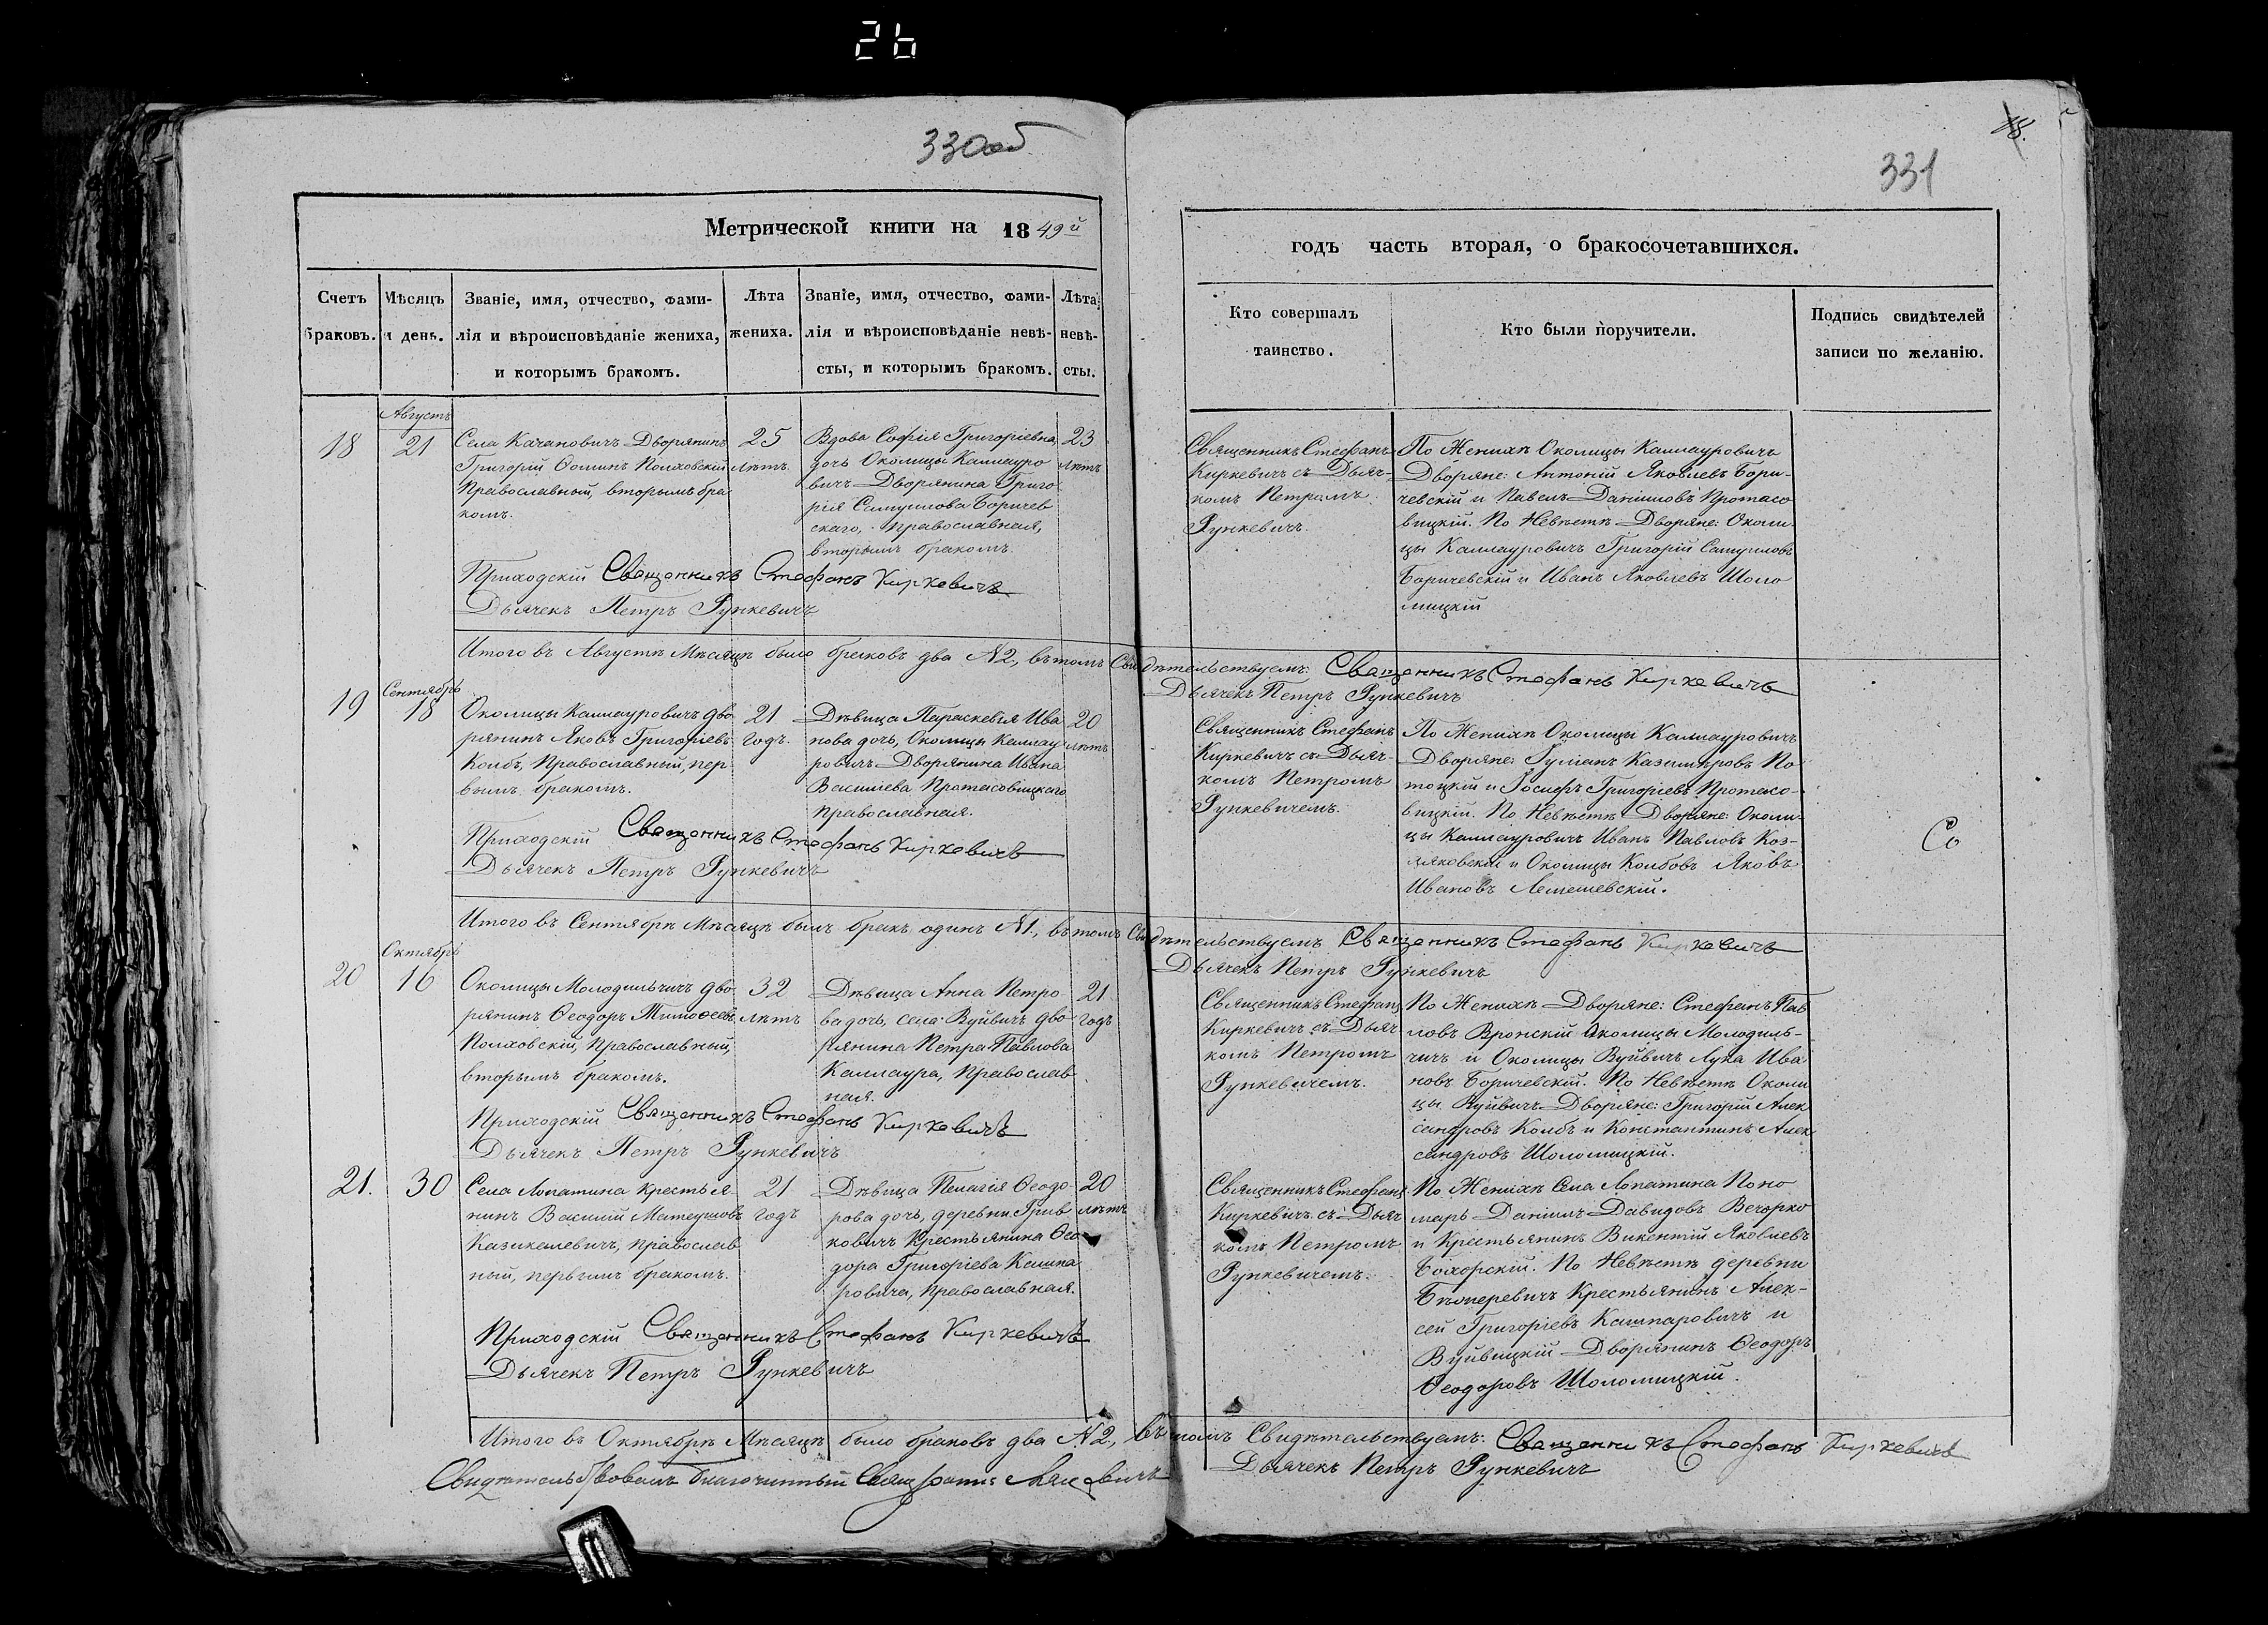 26
330об
331
Метрической книги на 1849й
годъ часть вторая, о бракосочетавшихся.
Счетъ
браковъ.
Мѣсяцъ
и день.
Званіе, имя, отчество, фами-
лія и вѣроисповѣданіе жениха,
и которымъ бракомъ.
Лѣта
жениха.
Званіе, имя, отчество, фами-
лія и вѣроисповѣданіе невѣ-
сты, и которымъ бракомъ.
Лѣта
невѣ-
сты.
Кто совершалъ
таинство.
Кто были поручители.
Подпись свидѣтелей
записи по желанію.
18
Августъ
21
Села Качановичъ Дворянинъ
Григорій Ѳоминъ Полховскій
Православный, вторымъ бра
комъ.
25
лѣтъ
Вдова Софія Григоріевна
дочь Околицы Каллауро
вичъ Дворянина Григо
рія Самуилова Боричев
скаго, Православная,
вторымъ бракомъ.
23
лѣтъ
Священникъ Стефанъ
Киркевичъ съ Дьяч-
комъ Петромъ
Рункевичъ.
По Женихѣ Околицы Каллауровичъ
Дворяне: Антоній Яковлевъ Бори-
чевскій и Павелъ Даніиловъ Протасо
вицкій. По Невѣстѣ Дворяне: Околи
цы Каллауровичъ Григорій Самуиловъ
Боричевскій и Иванъ Яковлевъ Шоло
мицкій
Приходскій Священникъ Стефанъ Киркевичъ
Дьячекъ Петръ Рункевичъ
Итого въ Августѣ Мѣсяцѣ было браковъ два N2, въ томъ Свидѣтельствуемъ: Священникъ Стефанъ Киркевичъ
Дьячекъ Петръ Рункевичъ
19
Сентябрь
18
Околицы Каллауровичъ дво
рянинъ Яковъ Григоріевъ
Колбъ, Православный, пер
вымъ бракомъ.
21
годъ.
Дѣвица Параскевія Ива
нова дочь, Околицы Каллау
ровичъ Дворянина Ивана
Василіева Протасовицкаго
Православная.
20
лѣтъ
Священникъ Стефанъ
Киркевичъ съ Дьяч-
комъ Петромъ
Рункевичемъ.
По Женихѣ Околицы Каллауровичъ
Дворяне: Гуліанъ Казимировъ По
тоцкій и Іосифъ Григоріевъ Протасо-
вицкій. По Невѣстѣ Дворяне: Околи-
цы Каллауровичъ Иванъ Павловъ Коз-
ляковскій и Околицы Колбовъ Яковъ
Ивановъ Лемешевскій.
Со
Приходскій Священникъ Стефанъ Киркевичъ
Дьячекъ Петръ Рункевичъ
Итого въ Сентябрѣ Мѣсяцѣ былъ бракъ одинъ N1, въ томъ Свидѣтельствуемъ Священникъ Стефанъ Киркевичъ
Дьячекъ Петръ Рункевичъ
20
Октябрь
16
Околицы Молодильчичъ дво
рянинъ Ѳеодоръ Тимоѳеевъ
Полховскій, Православный,
вторымъ бракомъ.
32
лѣтъ
Дѣвица Анна Петро
ва дочь, села Вуйвичъ дво
рянина Петра Павлова
Каллаура, Православ
ная.
21
годъ
Священникъ Стефанъ
Киркевичъ съ Дьяч
комъ Петромъ
Рункевичемъ.
По Женихѣ Дворяне: Стефанъ Пав
ловъ Вронскій Околицы Молодиль-
чичъ и Околицы Вуйвичъ Лука Ива
новъ Боричевскій. По Невѣстѣ Околи
цы Вуйвичъ Дворяне: Григорій Алек
сандровъ Колбъ и Константинъ Алек
сандровъ Шоломицкій.
Приходскій Священникъ Стефанъ Киркевичъ
Дьячекъ Петръ Рункевичъ
21.
30
Села Лопатина Крестья
нинъ Василій Матеушовъ
Казикелевичъ, Православ
ный, первымъ бракомъ.
21
годъ
Дѣвица Пелагія Ѳеодо
рова дочь, деревни Грив
ковичъ Крестьянина Ѳео
дора Григоріева Кашпа
ровича, Православная.
20
лѣтъ
Священникъ Стефанъ
Киркевичъ съ Дьяч
комъ Петромъ
Рункевичемъ.
По Женихѣ Села Лопатина Поно
марь Даніилъ Давидовъ Вечорко
и Крестьянинъ Викентій Яковлевъ
Боярскій. По Невѣстѣ деревни
Бѣоперевичъ Крестьянинъ Алек-
сей Григоріевъ Кашпаровичъ и
Вуйвицкій Дворянинъ Ѳеодоръ
Ѳеодоровъ Шоломицкій.
Приходскій Священникъ Стефанъ Киркевичъ
Дьячекъ Петръ Рункевичъ
Итого въ Октябрѣ Мѣсяцѣ было браковъ два N2, въ томъ Свидѣтельствуемъ: Священникъ Стефанъ Киркевичъ
Дьячекъ Петръ Рункевичъ
Свидѣтельствовалъ благочинный